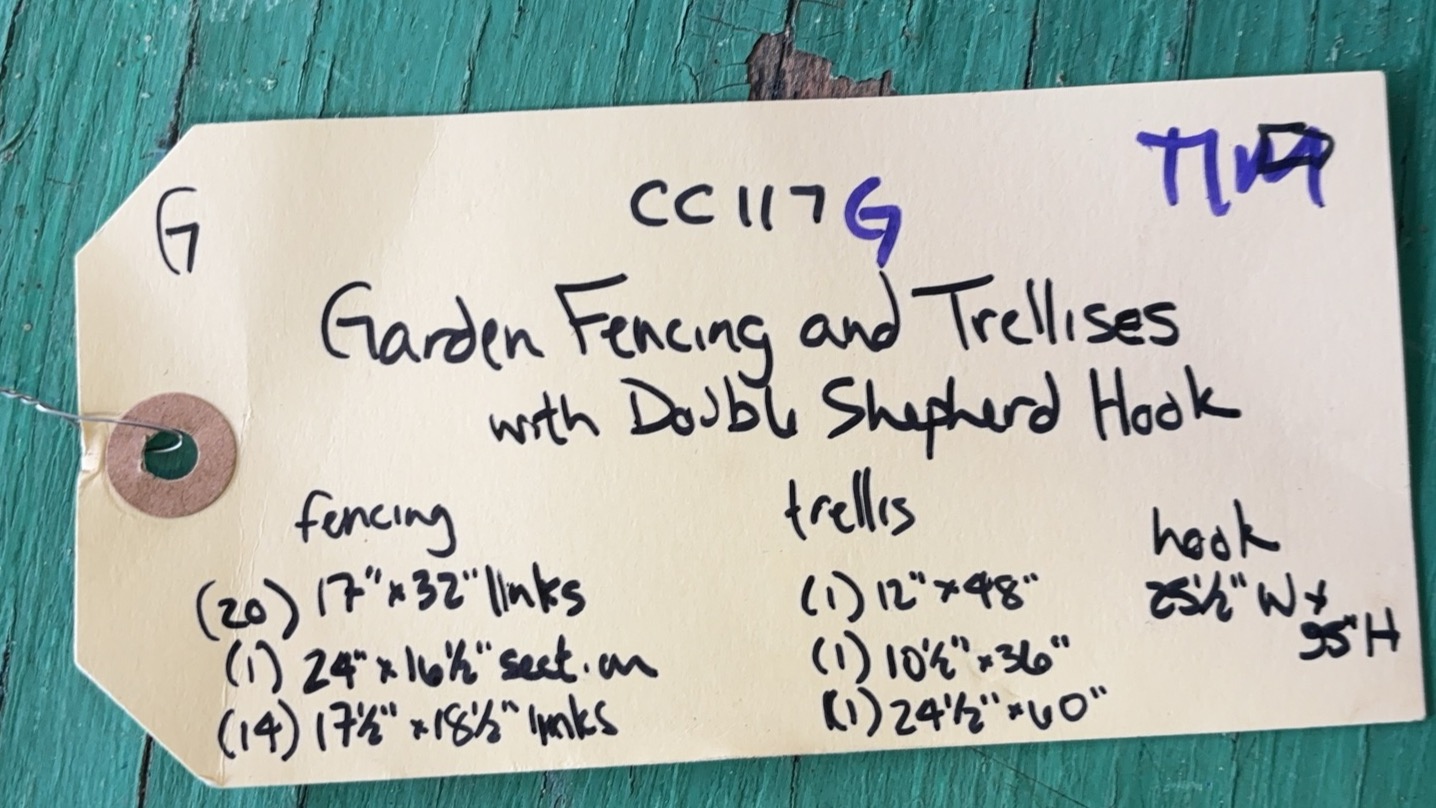 G
CC117G
Garden Fencing and Trellises
with Double Shepherd Hook
fencing
(20) 17" x 32" links
(1) 24" x 16½" section
(14) 17½" x 18½" links
trellis
(1) 12" x 48"
(1) 10½" x 36"
(1) 24½" x 60"
hook
25½" W x
95" H